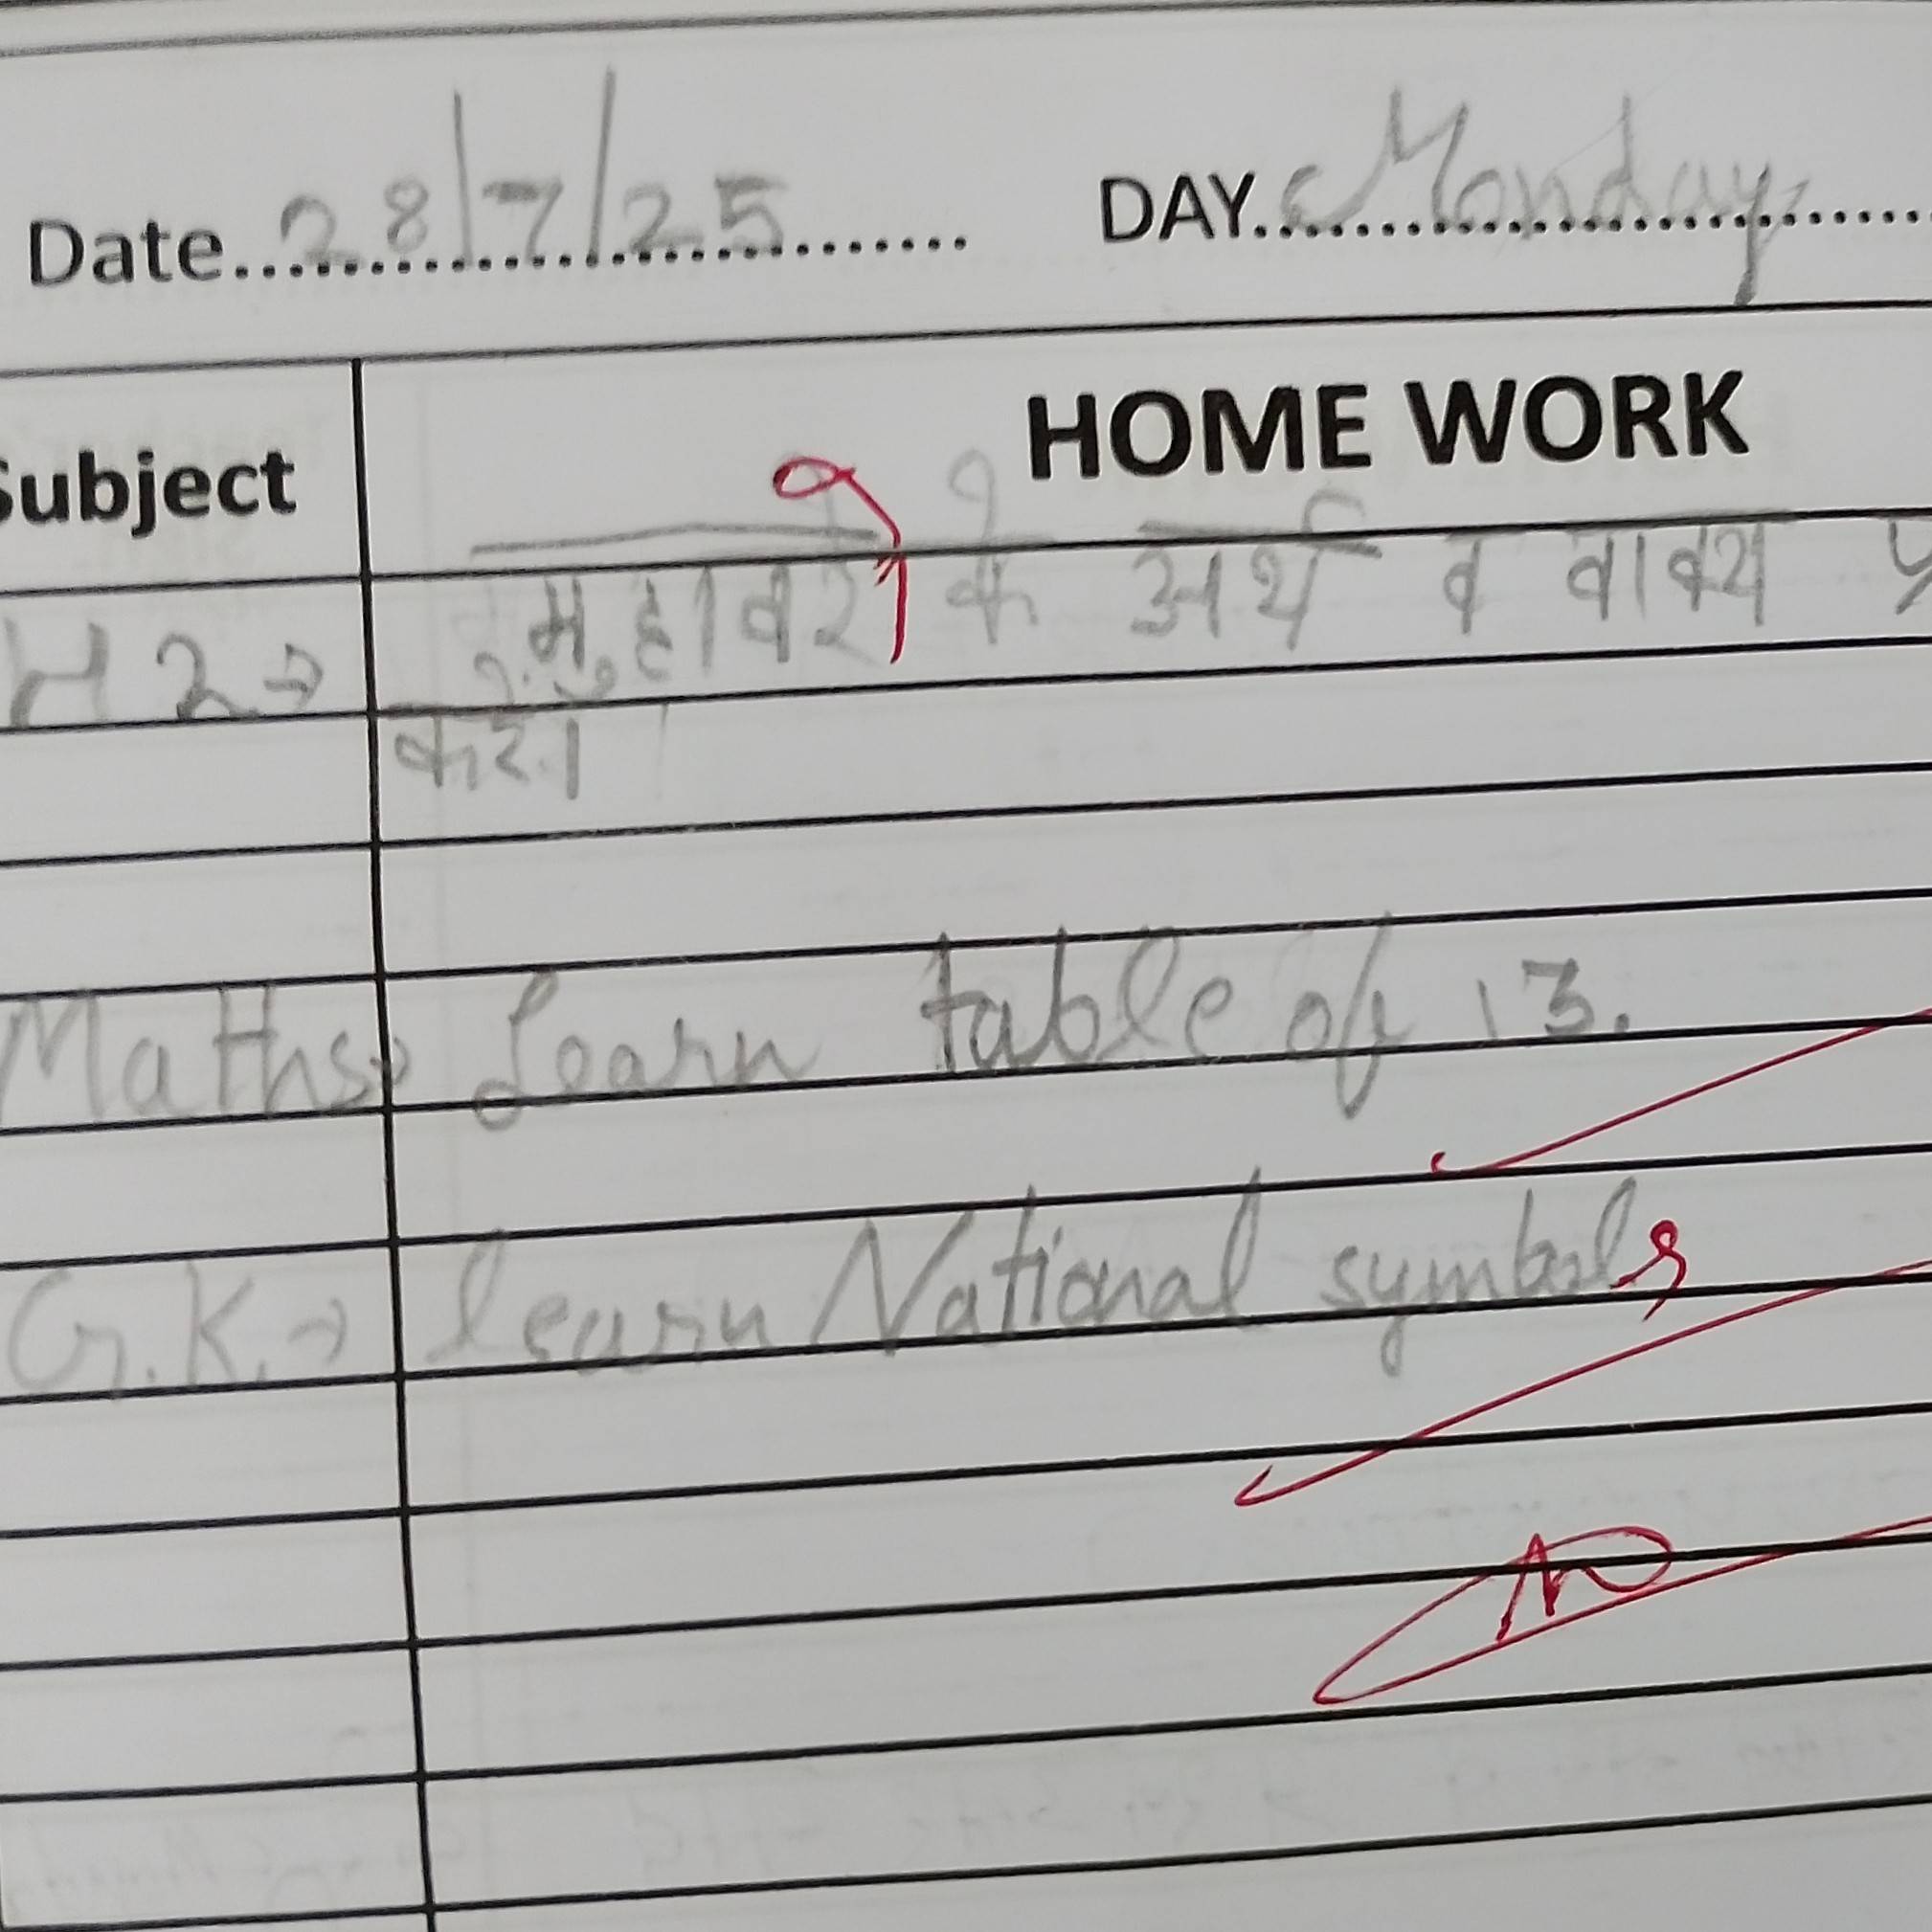 Date 28/7/25 DAY Monday
Subject HOME WORK
H2→ मुहावरों के अर्थ व वाक्य
करे।
Maths→ Learn table of 13.
G.K.→ learn National symbols